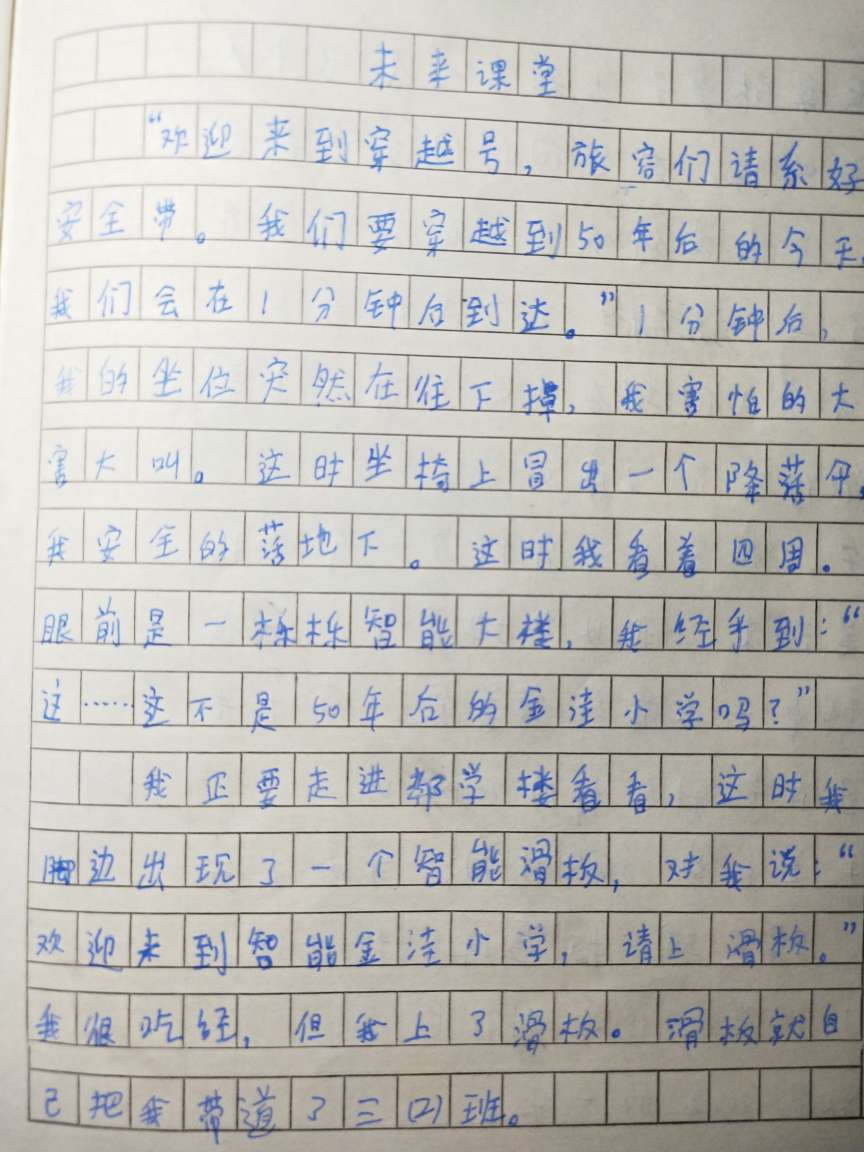 未来课堂
“欢迎来到穿越号，旅客们请系好
安全带。我们要穿越到50年后的今天，
我们会在1分钟后到达。”1分钟后，
我的坐位突然在往下掉，我害怕的大
害大叫。这时坐椅上冒出一个降落伞，
我安全的落地下。这时我看着四周。
眼前是一栋栋智能大楼，我经乎到：“
这……这不是50年后的金洼小学吗？”
我正要走进教学楼看看，这时我
脚边出现了一个智能滑板，对我说：“
欢迎来到智能金洼小学，请上滑板。”
我很吃经，但我上了滑板。滑板就自
己把我带道了三（2）班。